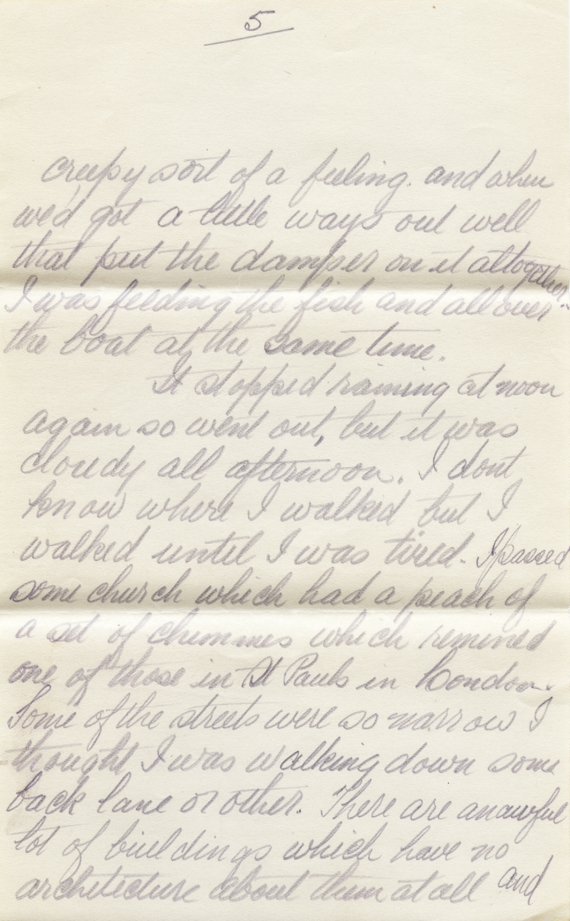 5
creepy sort of a feeling. and when
we'd got a little ways out well
that put the damper on it altogether.
I was feeding the fish and all over
the boat at the same time.
It stopped raining at noon
again so went out, but it was
cloudy all afternoon. I dont
know where I walked but I
walked until I was tired. I passed
some church which had a peach of
a set of chimmes which remined
one of those in St Pauls in London.
Some of the streets were so narrow I
thought I was walking down some
back lane or other. There are an awful
lot of buildings which have no
architecture about them at all and